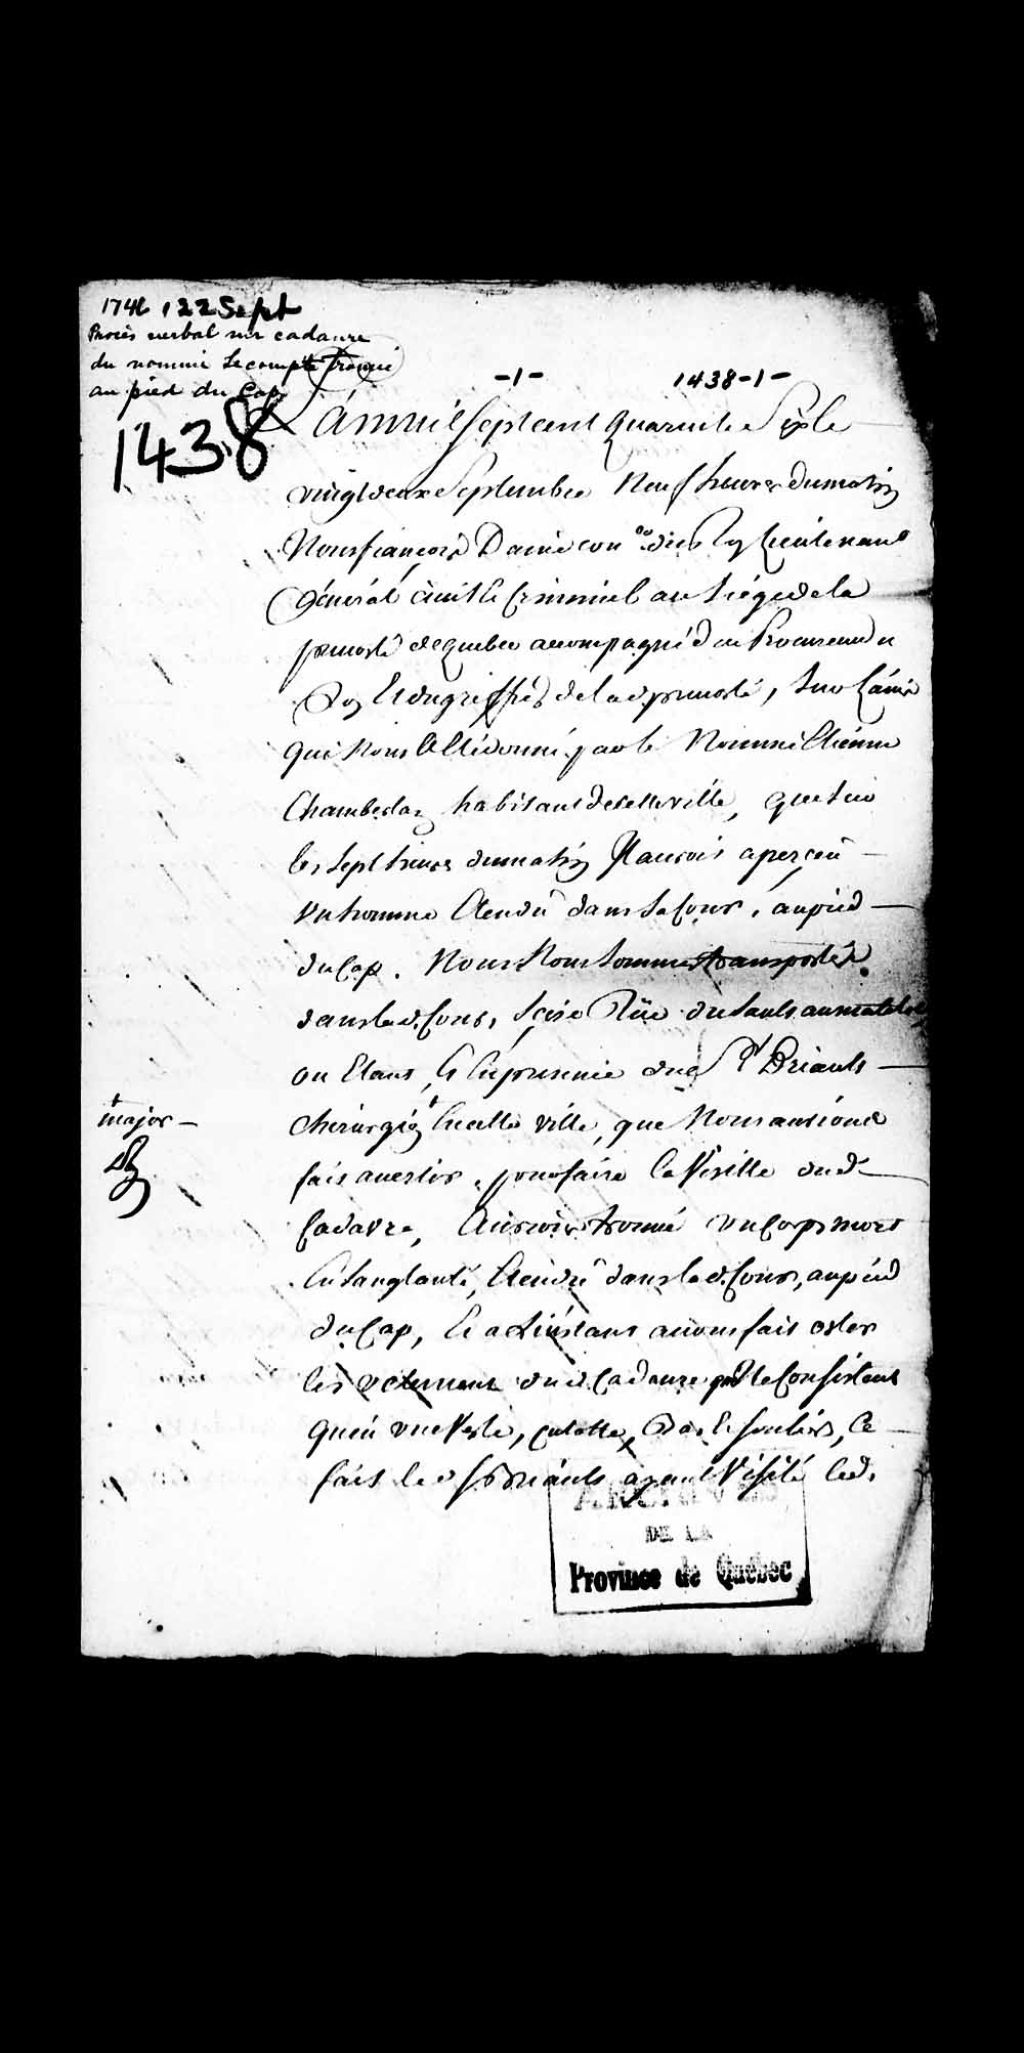 1746 122 Sept
Procès verbal sur cadavre
du nommé Lecompte trouvé
au pied du Cap
-1-
1438-1-
1438
L'an mil sept cent quarente Six le
vingt deux Septembre Neuf heures du matin
Nous françois Daine con.er du Roy Lieutenant
général civil & criminel au siége de la
prevosté de quebec accompagné du Procureur du
Roy Et du greffier de lad. prevosté, sur l'avis
qui Nous a Eté donné par le Nommé Etienne
Chamberlan habitant de cette ville, que sur
les sept heures du matin Il auroit aperçeu
un homme Etendu dans sa Cour, au pied
du Cap. Nous Nous sommes transportés
dans lad. Cour, scise Rüe du sault au matelot
ou Etant, & En presence du S.r Briault
chirurgien + de cette ville, que Nous aurions
+ major
fait avertir, pour faire la Visitte dud.
Cadavre, Aurions trouvé un Corps mort
Ensanglanté, Etendu dans lad. Cour, au pied
du Cap, Et a l'instant avons fait oster
les vetemens dud. Cadavre Consistant
qu'en une Veste, culotte, Bas & souliers, Ce
fait led. S. Briault ayant Visité led.
ARCHIVES
DE LA
Province de Québec